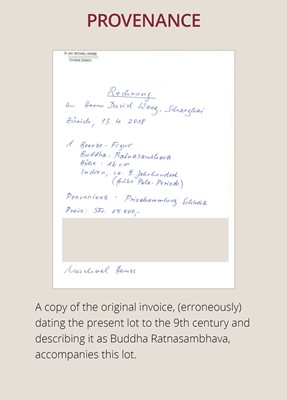 PROVENANCE
Rechnung
an Herrn David Wang, Shanghai
Zürich, 13.4.2018
1 Bronze-Figur
Buddha-Ratnasambhava
Höhe: 16 cm
Indien, ca. 9. Jahrhundert
(frühe Pala-Periode)
Provenienz: Privatsammlung Schweiz
Preis: SFr. 14.000.-
A copy of the original invoice, (erroneously)
dating the present lot to the 9th century and
describing it as Buddha Ratnasambhava,
accompanies this lot.